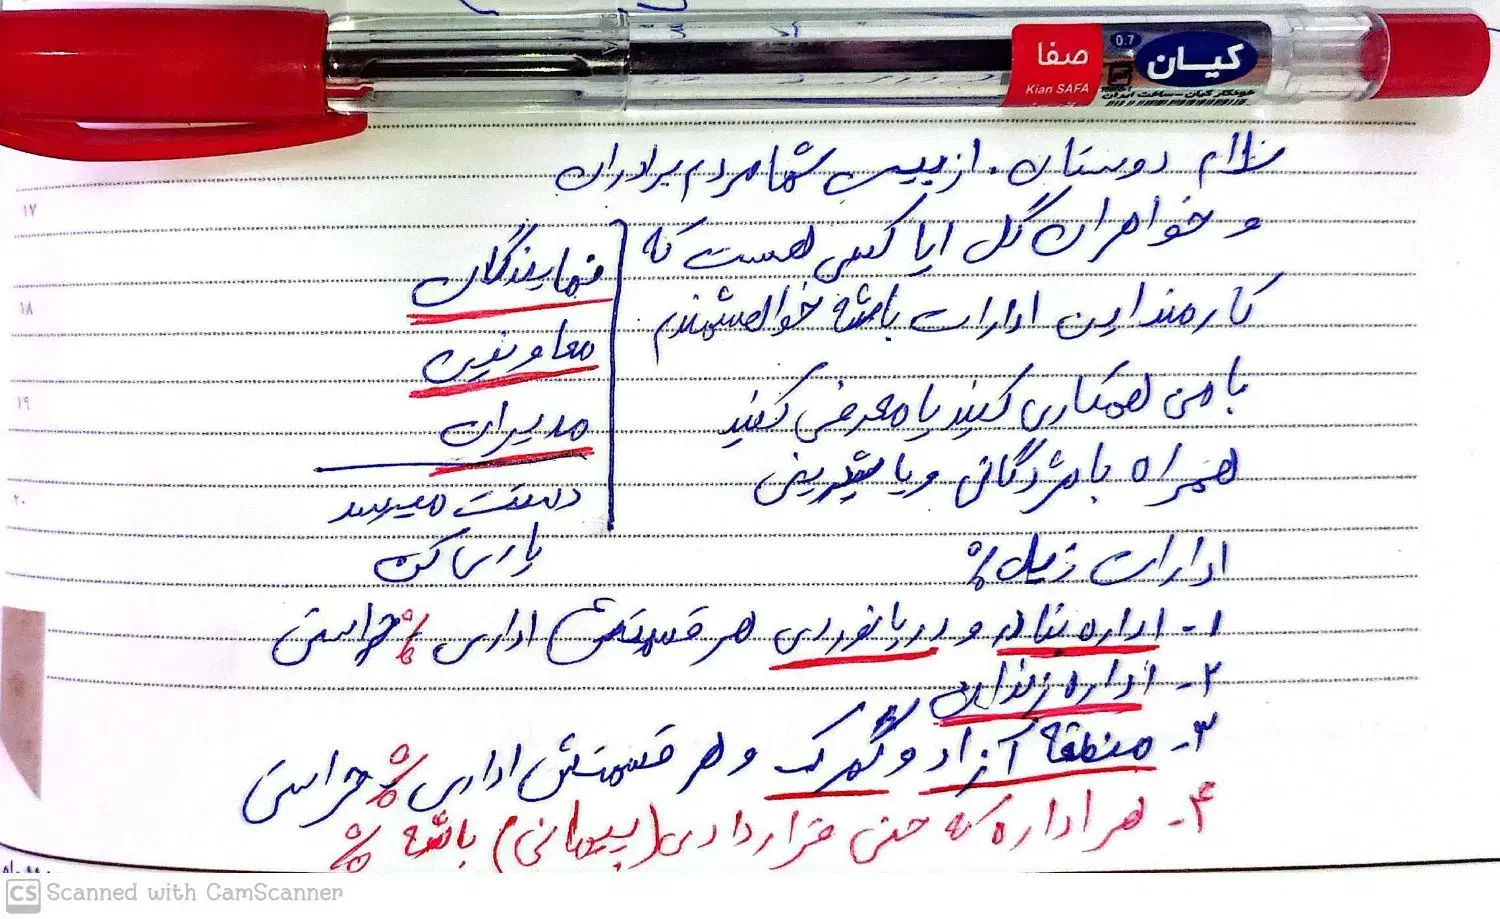 کیان
0.7
صفا
Kian SAFA
خودکار کیان-ساخت ایران
سلام دوستان. از بین شما مردم برادران
و خواهران گل ایا کسی هست که
کارمند این ادارات باشه خواهشمندم
با من همکاری کنید یا معرفی کنید
همراه با مژدگانی و یا شیرینی
نمایندگان
معاونین
مدیران
دست میرسد
پارسا کن
ادارات زیل:
۱- اداره بنادر و دریانوردی هر قسمتش اداری ٪ حراستی
۲- اداره زندان
۳- منطقه آزاد و گمرک و هر قسمتش اداری ٪ حراستی
۴- هر اداره که حتی قراردادی (پیمانی) باشه ٪
۱۷
۱۸
۱۹
۲۰
CS Scanned with CamScanner